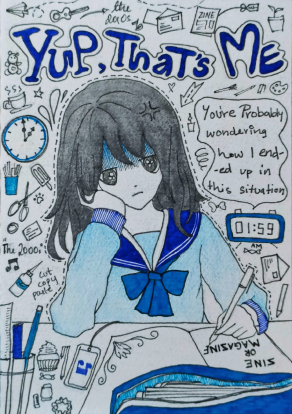 the
200's
ZINE
YUP, THAT'S ME
You're Probably
wondering
how I end-
ed up in
this situation
01:59
AM
"The 2000s"
cut
copy
paste
ZINE
OR
MAGAZINE